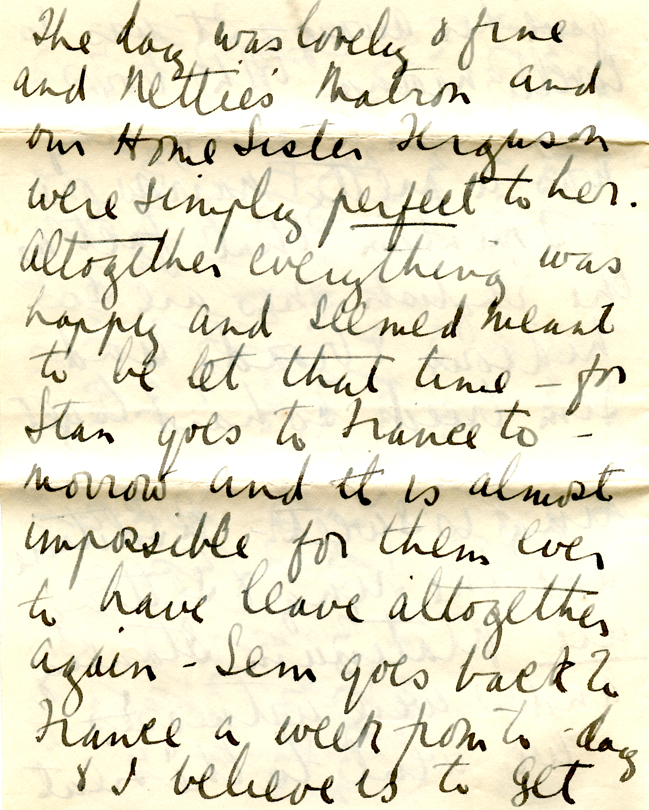 The day was lovely & fine
and Nettie's Matron and
our Home Sister Ferguson
were simply perfect to her.
Altogether everything was
happy and seemed meant
to be let that time – for
Stan goes to France to -
morrow and it is almost
impossible for them ever
to have leave altogether
again - Sem goes back to
France a week from to-day
& I believe is to get